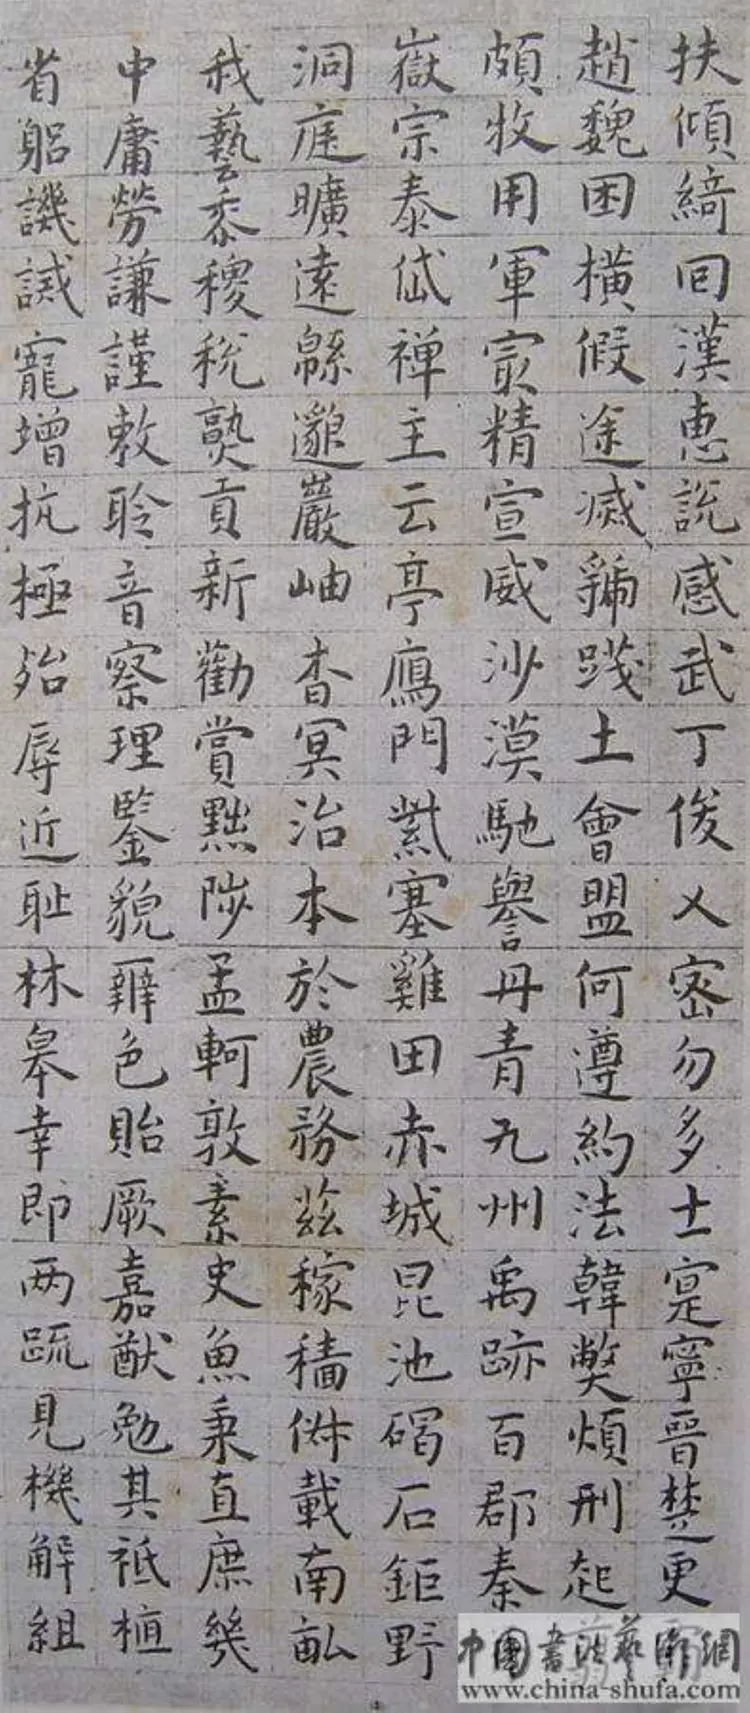 扶傾綺回漢恵說感武丁俊乂密勿多士寔寧晉楚更霸
趙魏困橫假途滅虢踐土會盟何遵約法韓弊煩刑起翦
頗牧用軍冣精宣威沙漠馳譽丹青九州禹跡百郡秦
嶽宗泰岱禪主云亭鴈門紫塞雞田赤城昆池碣石鉅野
洞庭曠遠緜邈巖岫杳冥治本於農務茲稼穡俶載南畝
我藝黍稷稅熟貢新勸賞黜陟孟軻敦素史魚秉直庶幾
中庸勞謙謹敕聆音察理鑒貌辨色貽厥嘉猷勉其祗植
省躬譏誡寵增抗極殆辱近耻林皋幸即两疏見機解組
中國書法藝術網
www.china-shufa.com